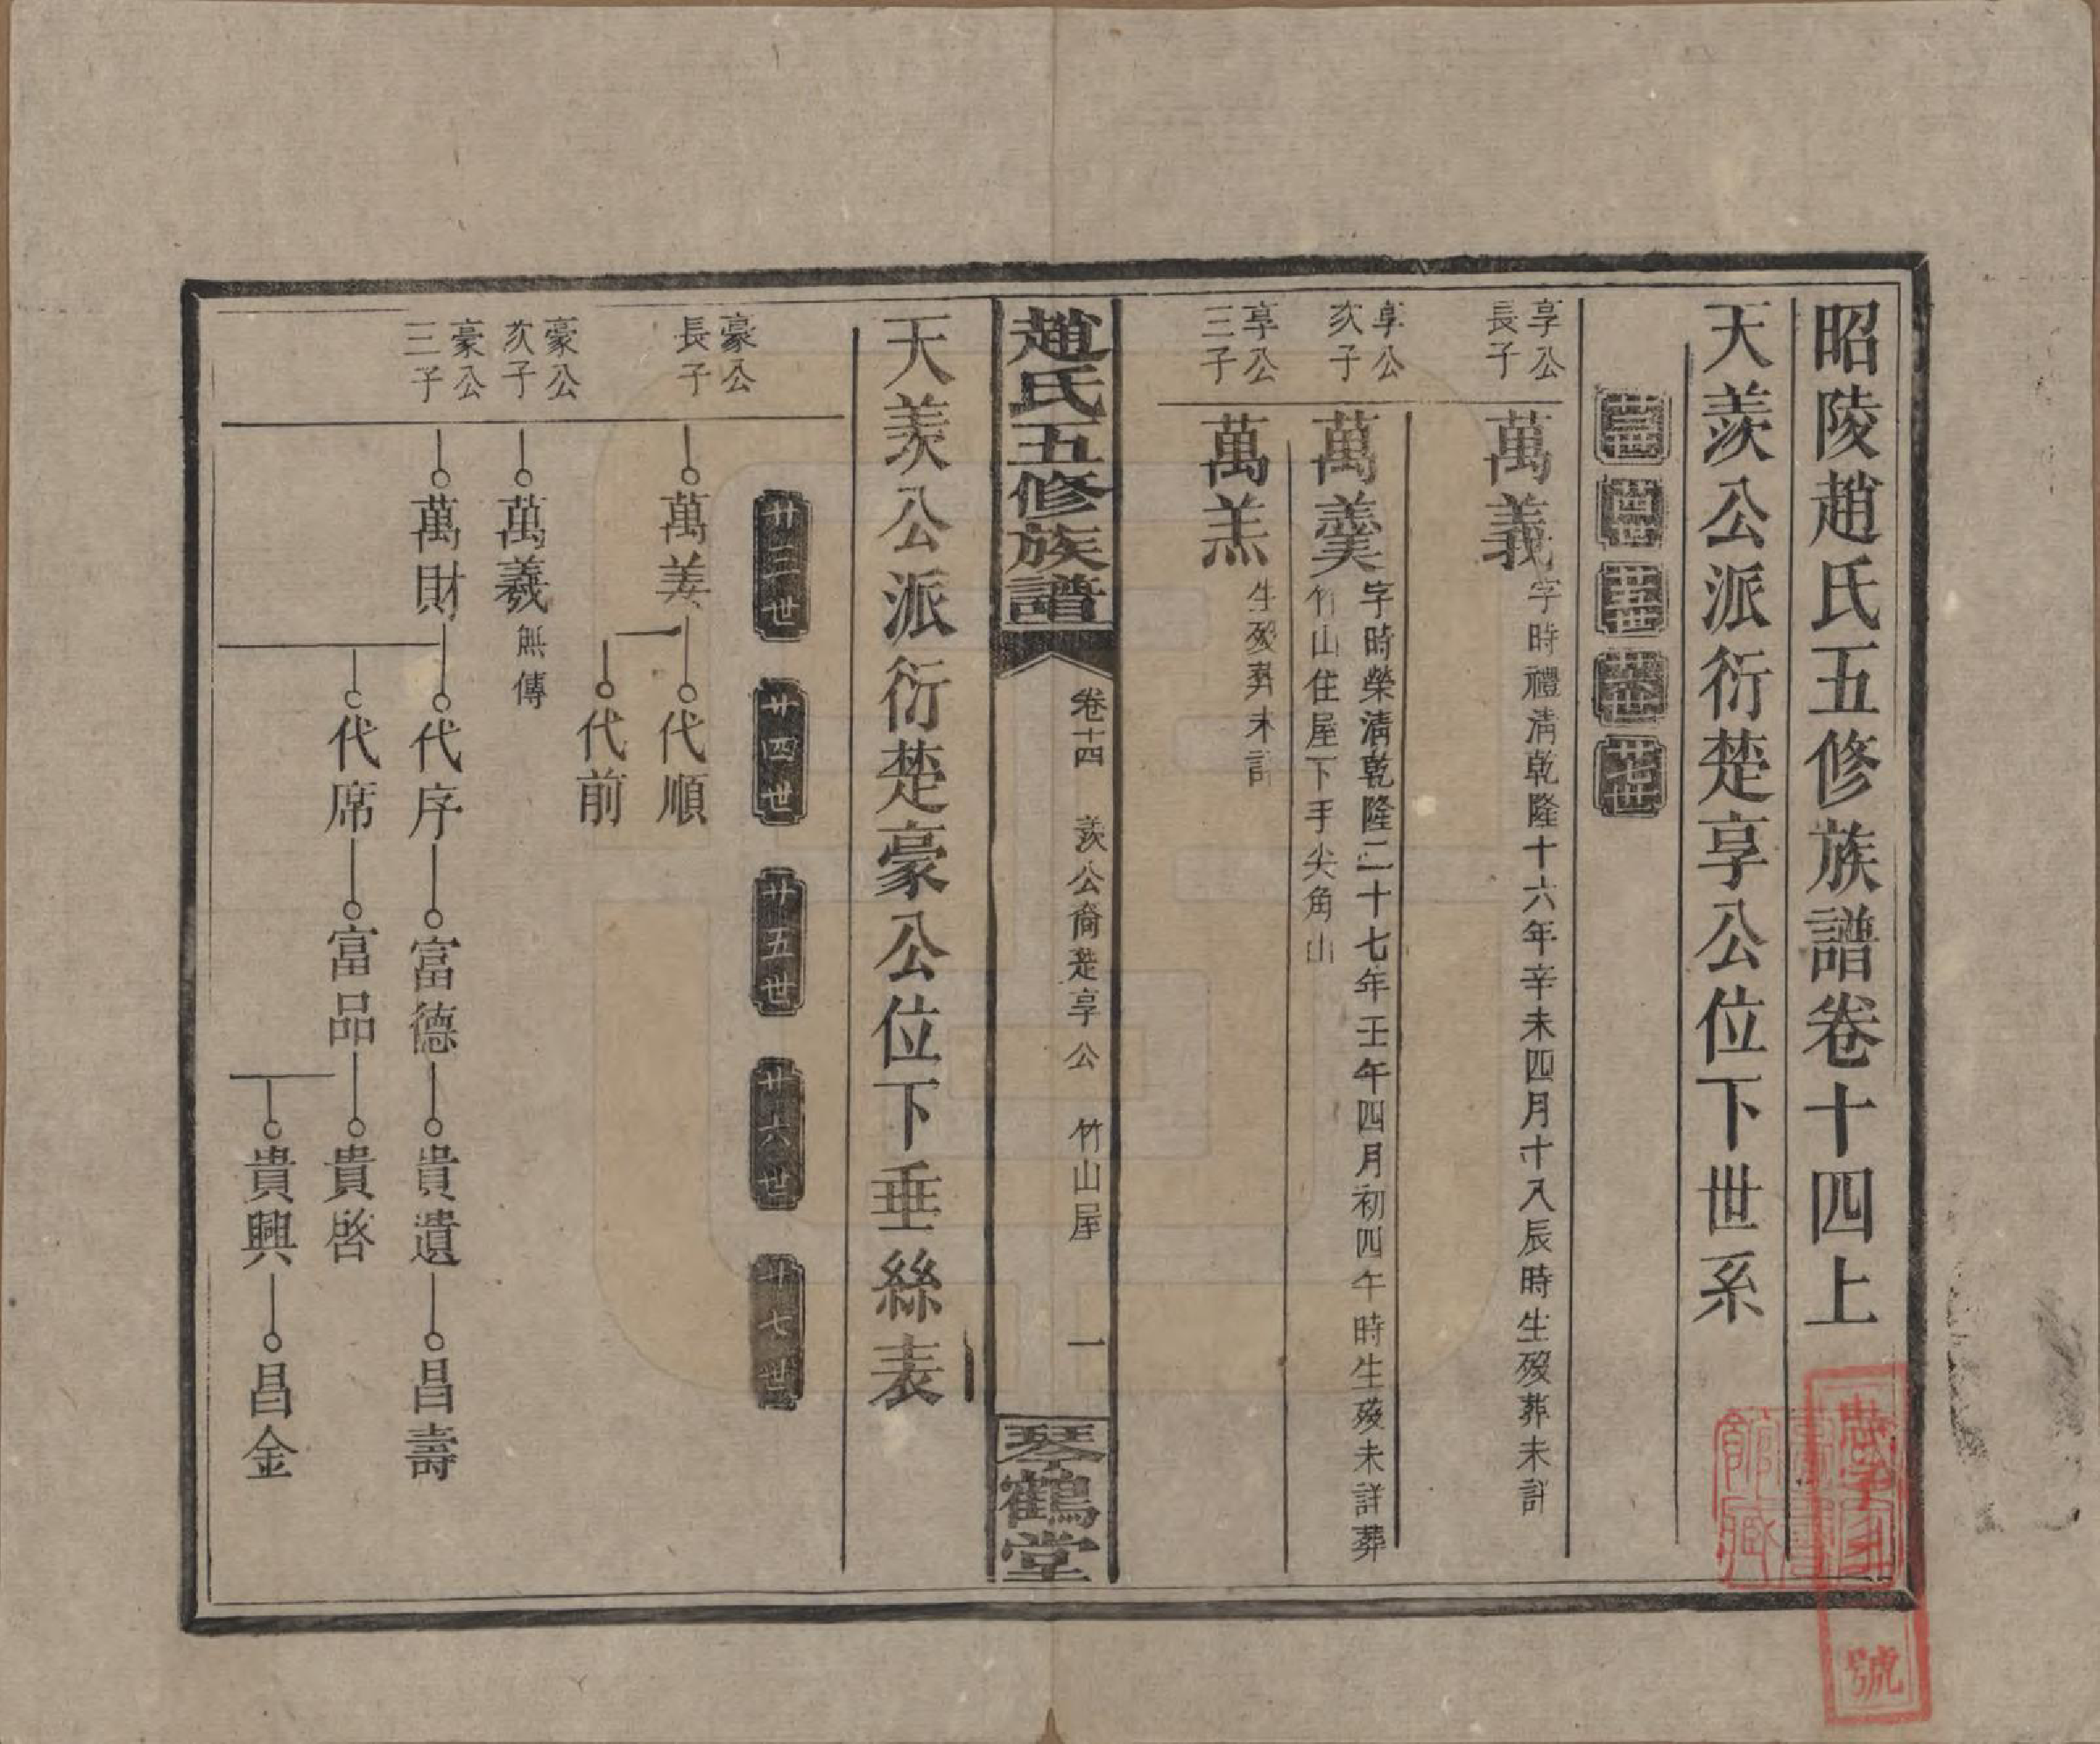 昭陵趙氏五修族譜卷十四上
天羨公派衍楚享公位下世系
廿三世 廿四世 廿五世 廿六世 廿七世
享公長子
萬義 字時禮清乾隆十六年辛未四月十八辰時生歿葬未詳
享公次子
萬羹 字時榮清乾隆二十七年壬午四月初四午時生歿未詳葬
竹山住屋下手尖角山
享公三子
萬羔 生歿葬未詳
趙氏五修族譜
卷十四 羨公裔楚享公 竹山屋 一
琴鶴堂
天羨公派衍楚豪公位下垂絲表
廿三世 廿四世 廿五世 廿六世 廿七世
豪公長子
萬美 代順
代前
豪公次子
萬羲 無傳
豪公三子
萬財 代序 富德 貴遺 昌壽
代席 富品 貴啓
貴興 昌金
號